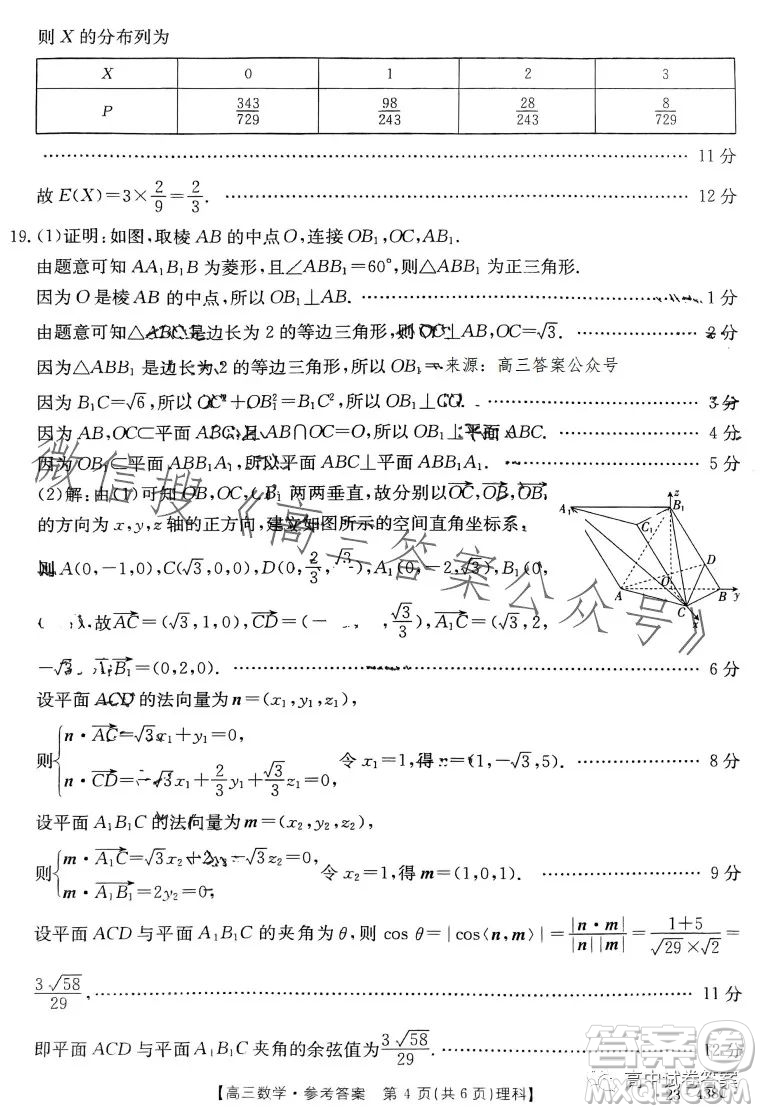 则 X 的分布列为
X 0 1 2 3
P 343/729 98/243 28/243 8/729
11 分
故 E(X)=3×2/9=2/3. 12 分
19.(1)证明:如图,取棱 AB 的中点 O,连接 OB₁,OC,AB₁.
由题意可知 AA₁B₁B 为菱形,且∠ABB₁=60°,则△ABB₁ 为正三角形.
因为 O 是棱 AB 的中点,所以 OB₁⊥AB. 1 分
由题意可知△ABC 是边长为 2 的等边三角形,则 OC⊥AB,OC=√3. 2 分
因为△ABB₁ 是边长为 2 的等边三角形,所以 OB₁ 来源: 高三答案公众号
因为 B₁C=√6,所以 OC²+OB₁²=B₁C²,所以 OB₁⊥ 3 分
因为 AB,OC⊂平面 ABC,且 AB∩OC=O,所以 OB₁⊥平面 ABC. 4 分
因为 OB₁⊂平面 ABB₁A₁,所以平面 ABC⊥平面 ABB₁A₁. 5 分
(2)解:由(1)可知 OB,OC,OB₁ 两两垂直,故分别以OC,OB,OB₁
的方向为 x,y,z 轴的正方向,建立如图所示的空间直角坐标系,
则 A(0,-1,0),C(√3,0,0),D(0,2/3, ),A₁(0,-2,√3),B₁(0,
故AC=(√3,1,0),CD=(- , ,√3/3),A₁C=(√3,2,
-√3 A₁B₁=(0,2,0). 6 分
设平面 ACD 的法向量为 n=(x₁,y₁,z₁),
则{n·AC=√3x₁+y₁=0,
n·CD=-√3x₁+2/3y₁+√3/3z₁=0, 令 x₁=1,得 n=(1,-√3,5). 8 分
设平面 A₁B₁C 的法向量为 m=(x₂,y₂,z₂),
则{m·A₁C=√3x₂+2y₂-√3z₂=0,
m·A₁B₁=2y₂=0, 令 x₂=1,得 m=(1,0,1). 9 分
设平面 ACD 与平面 A₁B₁C 的夹角为 θ,则 cos θ=|cos⟨n,m⟩|=|n·m|/|n||m|=(1+5)/(√29×√2)=
3√58/29, 11 分
即平面 ACD 与平面 A₁B₁C 夹角的余弦值为3√58/29. 12 分
【高三数学·参考答案 第 4 页(共 6 页)理科】
A₁ z B₁
C₁
D
A O B y
C
x
微信搜《高三答案公众号》
答案圈
高中试卷答案